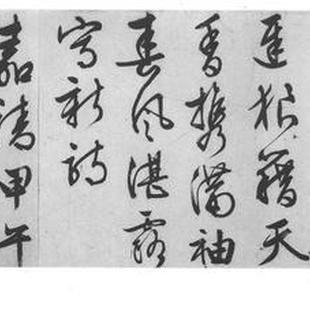 狼籍天
香携滿袖
春風湛露
寫新詩
嘉靖甲午